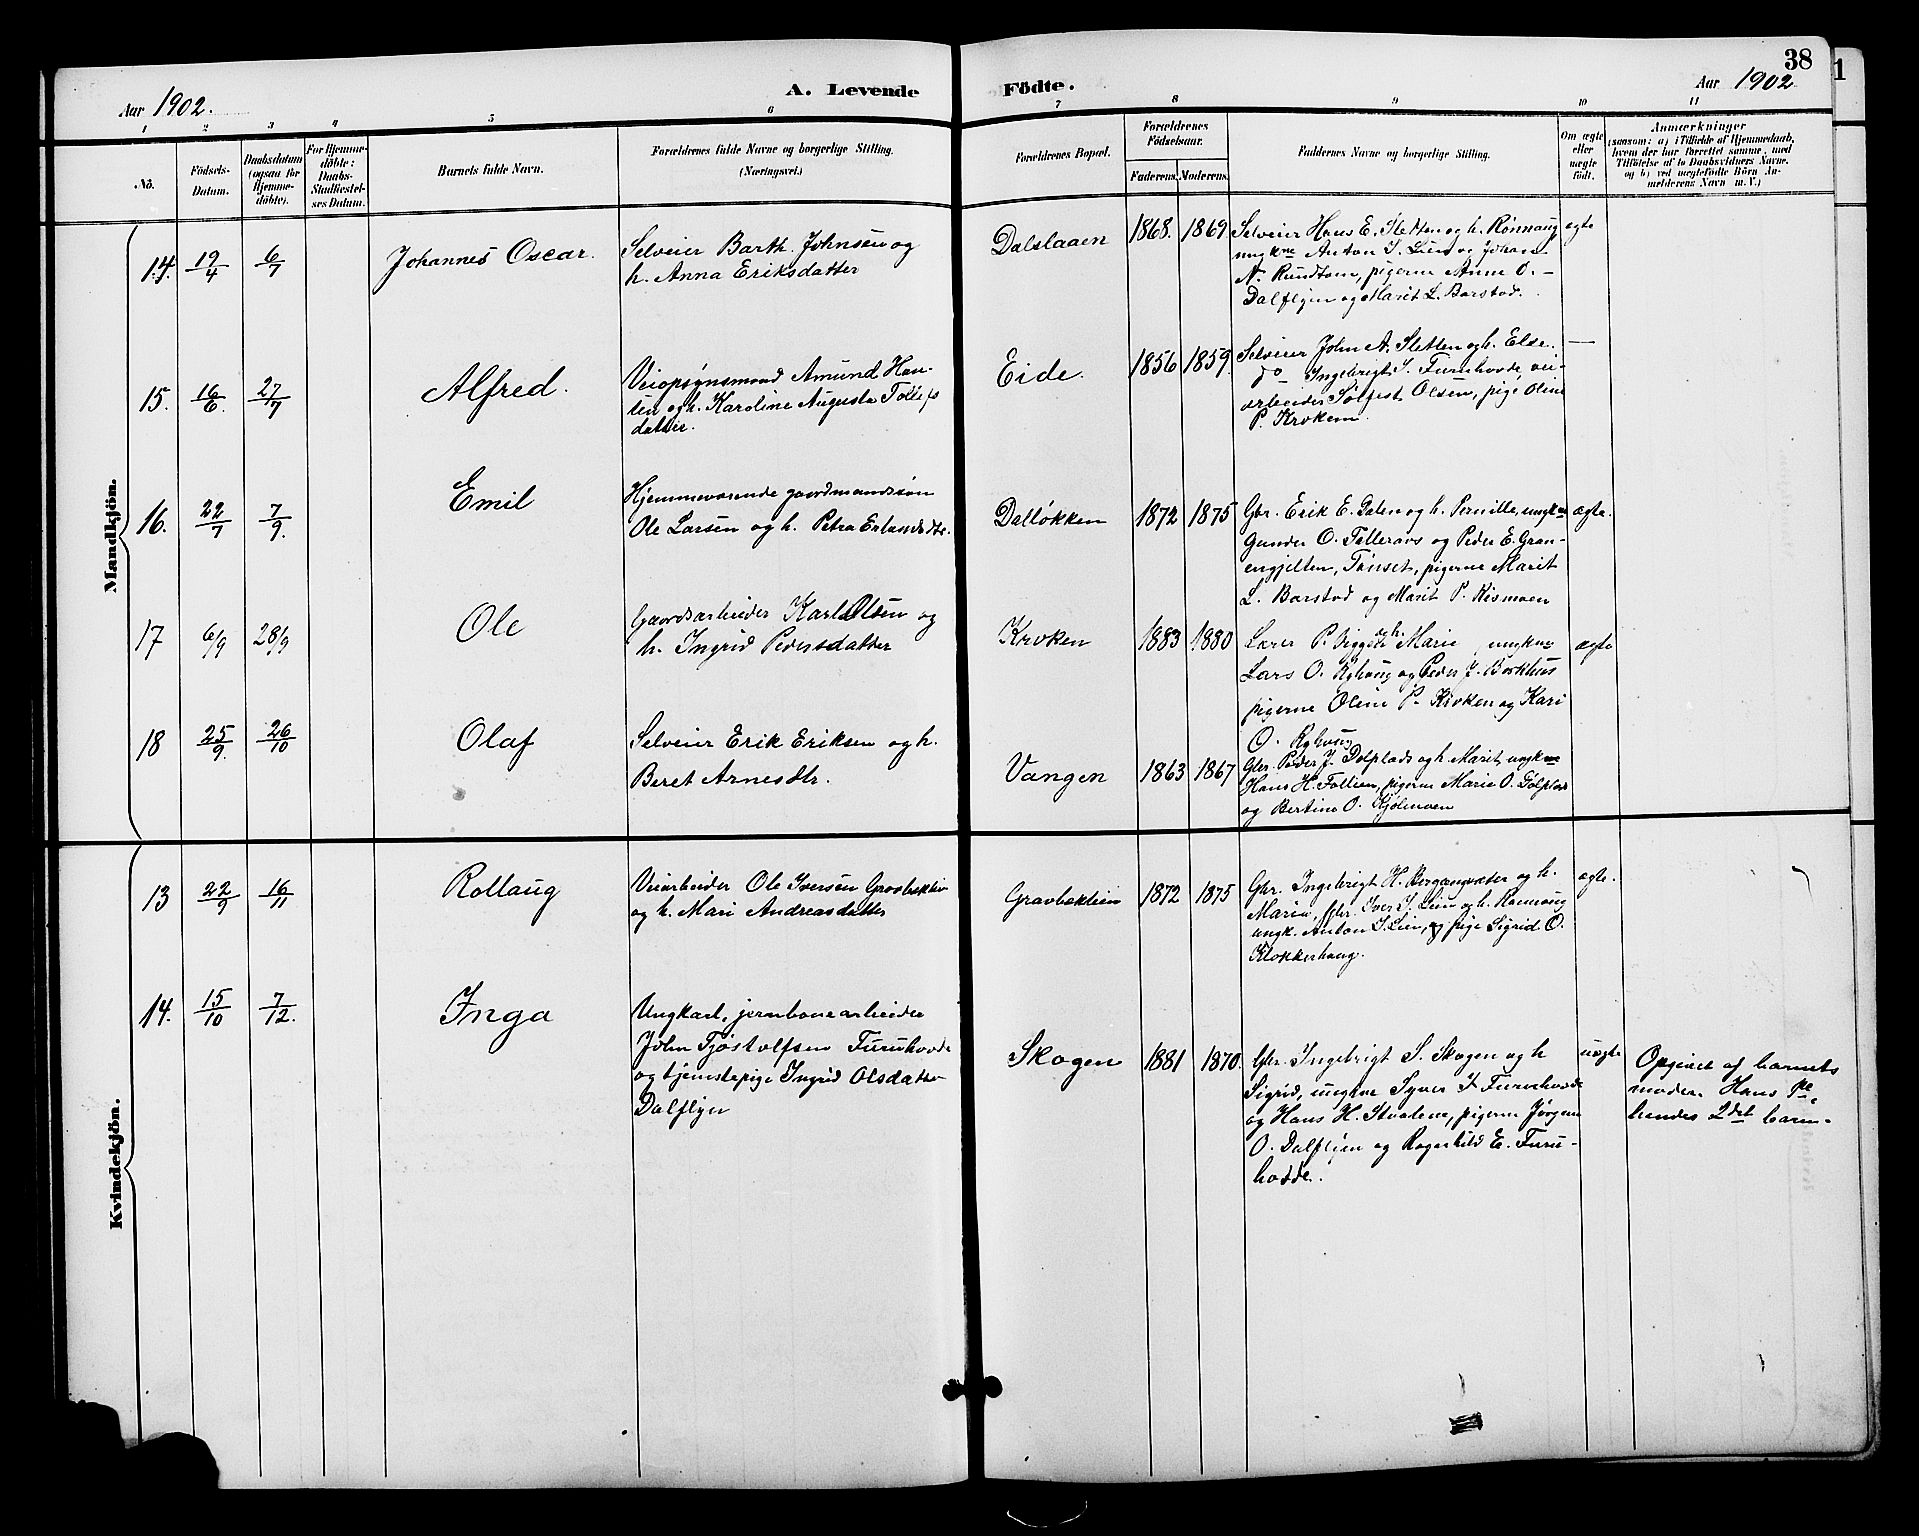 Aar 1902.
A. Levende
Födte.
38
Aar 1902
1 2 3 4 5 6 7 8 9 10 11
No.
Födsels-
Datum.
Daabsdatum
(ogsaa for
Hjemme-
döbte).
For Hjemme-
döbte:
Daabs-
Stadfæstel-
ses Datum.
Barnets fulde Navn.
Forældrenes fulde Navne og borgerlige Stilling.
(Næringsvei.)
Forældrenes Bopæl.
Forældrenes
Födselsaar.
Faderens. Moderens.
Faddernes Navne og borgerlige Stilling.
Om ægte
eller
uægte
födt.
Anmærkninger
(saasom: a) i Tilfælde af Hjemmedaab,
hvem der har forrettet samme, med
Tilföielse af to Daabsvidners Navne,
og b) ved uægtefödte Börn An-
melderens Navn m. V.)
Mandkjön.
14. 19/4 6/7 Johannes Oscar.
Selveier Barth. Johnsen og
h. Anna Eriksdatter
Dalslaaen 1868. 1869.
Selveier Hans E. Sletten og h. Rønnaug
ungkne Anton I. Lien og Johan
N. Rundtom, pigerne Anne O. -
Dalflyen og Marit L. Barstad.
ægte
15. 16/6. 27/7 Alfred.
Veiopsynsmand Amund Han-
sen og h. Karoline Augusta Tollefs
datter.
Eide. 1856 1859
Selveier John A. Sletten og h. Else.
do - Ingebrigt I. Furuhovde, vei-
arbeider Solfest Olsen, pige Oline
P. Kroken.
—
16. 22/7 7/9. Emil
Hjemmeværende gaardmandssøn
Ole Larsen og h. Petra Erlandsdtr.
Dalløkken 1872 1875
Gbr. Erik E. Dalen og h. Pernille, ungkne
Gunder O. Tolleraas og Peder E. Gran-
engjelten, Tønset, pigerne Marit
L. Barstad og Marit P. Rismoen
ægte.
17 6/9 28/9 Ole
Gaardsarbeider Karl Olsen og
h. Ingrid Pedersdatter
Kroken 1883 1880
Lars P. og h. Marie, ungkne
Lars O. Ryhaug og Peder J. Borkhus
pigerne Oline P. Kroken og Kari
O. Ryhaug
ægte
18 25/9. 26/10 Olaf
Selveier Erik Eriksen og h.
Beret Arnesdtr.
Vangen 1863 1867
Gbr. Peder J. Dølplads og h. Marit ungkne
Hans H. Follien, pigerne Marie O. Dølplads
og Bertine O. Kjølmoen
Kvindekjön.
13 22/9 16/11 Rollaug
Veiarbeider Ole Iversen Gravbeklien
og h. Mari Andreasdatter
Gravbeklien 1872 1875
Gbr. Ingebrigt H. og h.
Marie, Gbr. Iver I. Lien og h. Rønnaug
ungk. Anton I. Lien, og pige Sigrid O.
Klokkerhaug.
ægte.
14. 15/10 7/12. Inga
Ungkarl, jernbanearbeider
John Tjøstolfsen Furuhovde
og tjenestepige Ingrid Olsdatter
Dalflyen
Skogen 1881 1870.
Gbr. Ingebrigt S. Skogen og h
Sigrid, ungkne Syver I Furuhovde
og Hans H. Stualene, pigerne Jørgine
O. Dalflyen og Ragnhild E. Furu-
hovde.
uægte
Opgivet af barnets
moder. Hans 1ste,
hendes 2det barn.